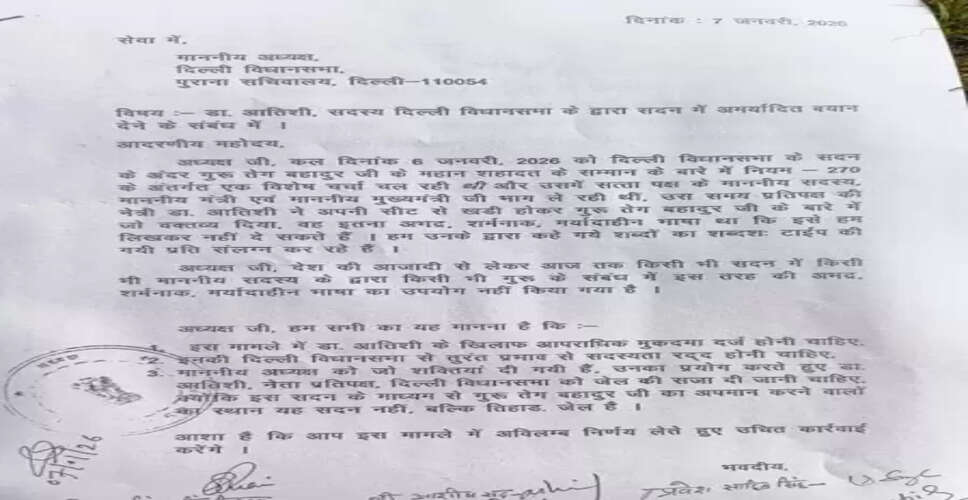 दिनांक : 7 जनवरी, 2026
सेवा में,
माननीय अध्यक्ष,
दिल्ली विधानसभा,
पुराना सचिवालय, दिल्ली–110054
विषय :– डा. आतिशी, सदस्य दिल्ली विधानसभा के द्वारा सदन में अमर्यादित बयान
देने के संबंध में ।
आदरणीय महोदय,
अध्यक्ष जी, कल दिनांक 6 जनवरी, 2026 को दिल्ली विधानसभा के सदन
के अंदर गुरू तेग बहादुर जी के महान शहादत के सम्मान के बारे में नियम – 270
के अंतर्गत एक विशेष चर्चा चल रही थी और उसमें सत्ता पक्ष के माननीय सदस्य,
माननीय मंत्री एवं माननीय मुख्यमंत्री जी भाग ले रही थीं, उस समय प्रतिपक्ष की
नेत्री डा. आतिशी ने अपनी सीट से खडी होकर गुरू तेग बहादुर जी के बारे में
जो वक्तव्य दिया, वह इतना अभद्र, शर्मनाक, मर्यादाहीन भाषा था कि इसे हम
लिखकर नहीं दे सकते हैं । हम उनके द्वारा कहे गये शब्दों का शब्दशः टाईप की
गयी प्रति संलग्न कर रहे हैं ।
अध्यक्ष जी, देश की आजादी से लेकर आज तक किसी भी सदन में किसी
भी माननीय सदस्य के द्वारा किसी भी गुरू के संबंध में इस तरह की अभद्र,
शर्मनाक, मर्यादाहीन भाषा का उपयोग नहीं किया गया है ।
अध्यक्ष जी, हम सभी का यह मानना है कि :–
इस मामले में डा. आतिशी के खिलाफ आपराधिक मुकदमा दर्ज होनी चाहिए,
2. इनकी दिल्ली विधानसभा से तुरंत प्रभाव से सदस्यता रद्द होनी चाहिए,
3. माननीय अध्यक्ष को जो शक्तियां दी गयी हैं, उनका प्रयोग करते हुए डा.
आतिशी, नेता प्रतिपक्ष, दिल्ली विधानसभा को जेल की सजा दी जानी चाहिए,
क्योंकि इस सदन के माध्यम से गुरू तेग बहादुर जी का अपमान करने वालों
का स्थान यह सदन नहीं, बल्कि तिहाड़ जेल है ।
आशा है कि आप इस मामले में अविलम्ब निर्णय लेते हुए उचित कार्रवाई
करेंगे ।
07/1/26
भवदीय,